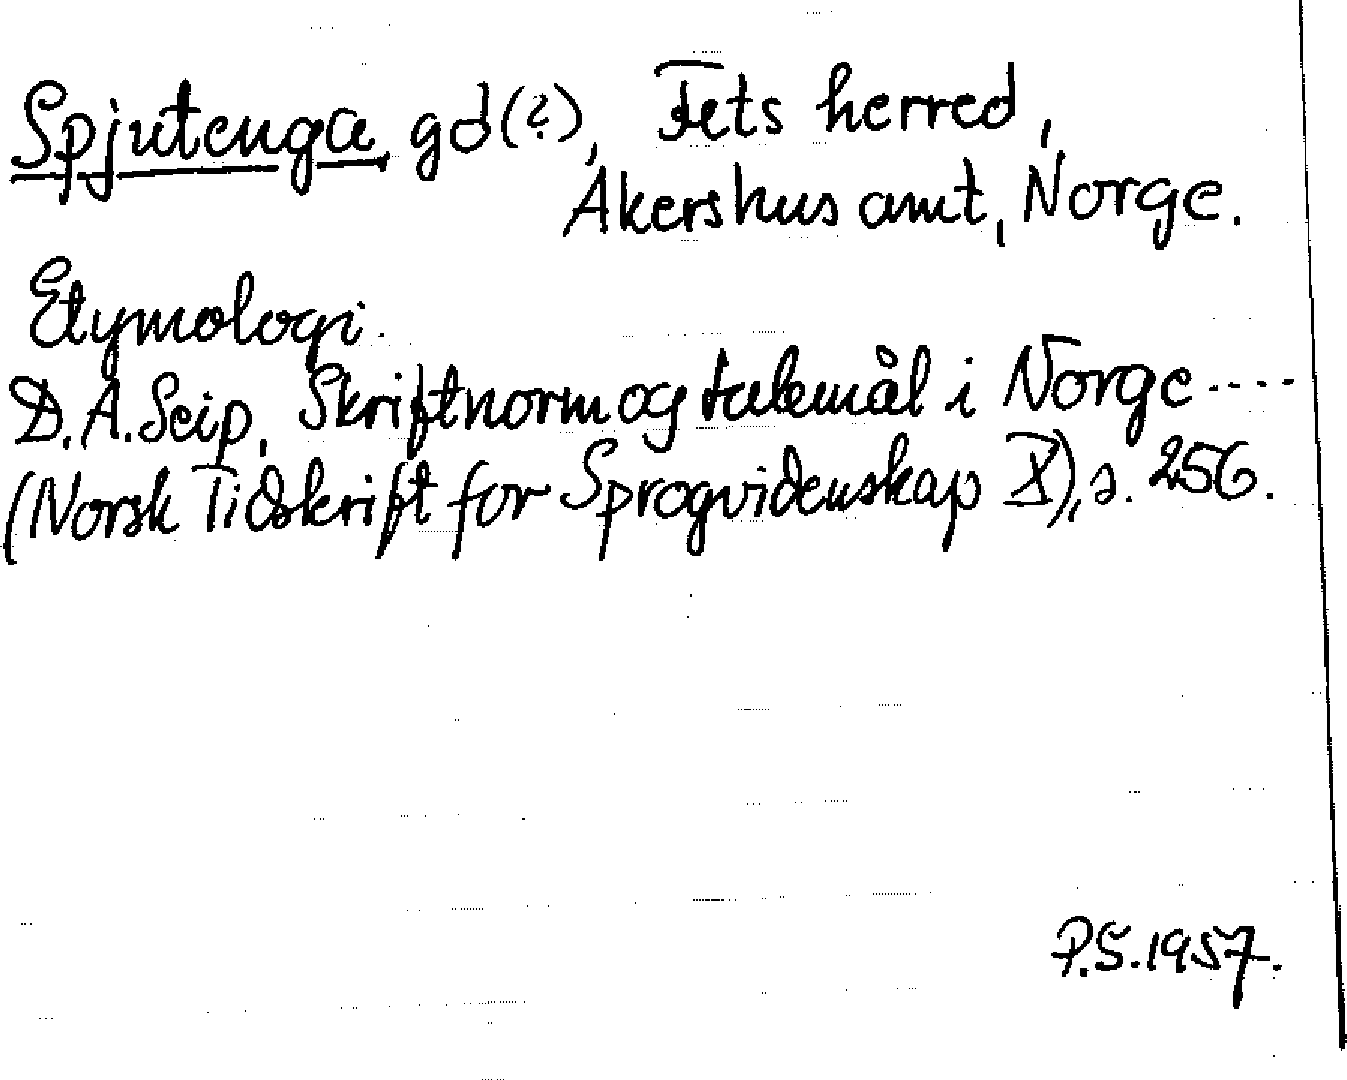 Spjutenga gd(?), Fets herred,
Akershus amt, Norge.
Etymologi.
D.A.Seip, Skriftnorm og talemål i Norge ----
(Norsk Tidskrift for Sprogvidenskap X), s. 256.
P.S.1957.